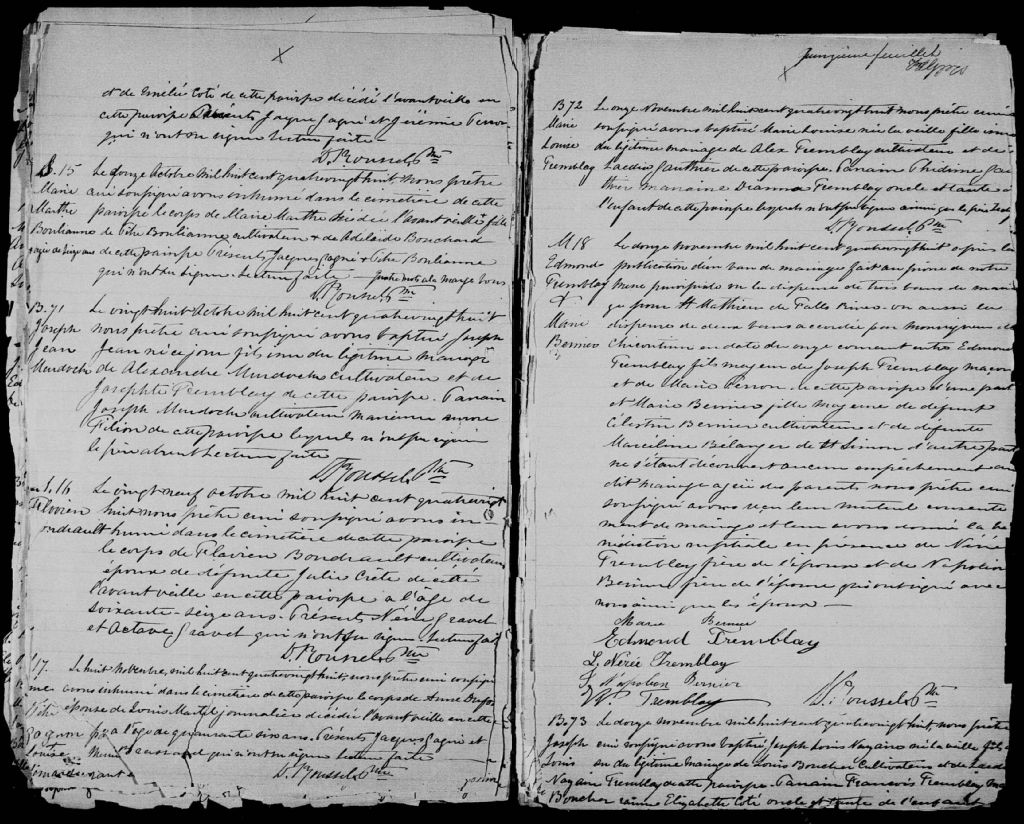 et de Emélie Coté de cette paroisse décédé l'avant veille en
cette paroisse Présents Jacques Gagné et Jérémie Perron
qui n'ont su signer Lecture faite
D. Roussel Ptre
S. 15 Le douze Octobre mil huit cent quatrevingt huit, nous prêtre
Marie curé soussigné avons inhumé dans le cemetière de cette
Marthe paroisse le corps de Marie Marthe décédée l'avant veille fille
Boulianne de Boulianne cultivateur & de Adelaide Bouchard
de cette paroisse Présents Jacques Gagné &  Boulianne
qui n'ont su signer. Lecture faite — quatre mots à la marge bons
D. Roussel Ptre
B. 71 Le vingt huit Octobre mil huit cent quatrevingt huit
Joseph nous prêtre curé soussigné avons baptisé Joseph
Jean Jean né ce jour fils issu du légitime mariage
Murdoch de Alexandre Murdoch cultivateur et de
Josephte Tremblay de cette paroisse. Parrain
Joseph Murdoch cultivateur marraine
Filion de cette paroisse lesquels n'ont pu signer
le père absent Lecture faite
D. Roussel Ptre
S. 16 Le vingt neuf octobre mil huit cent quatrevingt
Flavien huit nous prêtre curé soussigné avons in
Boudreault humé dans le cemetière de cette paroisse
le corps de Flavien Boudreault cultivateur
époux de défunte Julie Crête décédé
l'avant veille en cette paroisse à l'âge de
soixante-seize ans. Présents Néré Gravel
et Octave Gravel qui n'ont su signer. Lecture faite
D. Roussel Ptre
17. Le huit novembre mil huit cent quatrevingt huit, nous prêtre curé soussigné
avons inhumé dans le cemetière de cette paroisse le corps de Anne
épouse de Louis Martel journalier décédée l'avant veille en cette
paroisse à l'âge de quarante six ans. Présents Jacques Gagné et
qui n'ont su signer Lecture faite
D. Roussel Ptre
feuillet
B 72 Le onze Novembre mil huit cent quatrevingt huit nous prêtre curé
Marie soussigné avons baptisé Marie Louise née la veille fille issue
Louise du légitime mariage de Alex Tremblay cultivateur et de
Tremblay Gauthier de cette paroisse. Parrain
marraine Tremblay oncle et tante à
l'enfant de cette paroisse lesquels n'ont pu signer ainsi que le père
D. Roussel Ptre
M 18 Le douze novembre mil huit cent quatrevingt huit après la
Edmond publication d'un ban de mariage fait au prône de notre
Tremblay messe paroissiale vu la dispense de trois bans de maria
& ge pour St Mathieu de vu aussi la
Marie dispense de deux bans accordée par monseigneur de
Bernier Chicoutimi en date du onze courant entre Edmond
Tremblay fils majeur de Joseph Tremblay maçon
et de Marie Perron de cette paroisse d'une part
et Marie Bernier fille majeure de défunt
Célestin Bernier cultivateur et de défunte
Marceline Bélanger de St Simon d'autre part
ne s'étant découvert aucun empêchement au
dit mariage agée des parents nous prêtre curé
soussigné avons reçu leur mutuel consente
ment de mariage et leur avons donné la bé
nédiction nuptiale en présence de Nérée
Tremblay frère de l'époux et de Napoléon
Bernier frère de l'épouse qui ont signé avec
nous ainsi que les époux —
Marie Bernier
Edmond Tremblay
L. Nérée Tremblay
Napoléon Bernier
Tremblay D. Roussel Ptre
B. 73 Le douze novembre mil huit cent quatrevingt huit, nous prêtre
Joseph curé soussigné avons baptisé Joseph Louis Nazaire né la veille fils
Louis issu du légitime mariage de Louis Boucher Cultivateur et de
Nazaire Tremblay de cette paroisse. Parrain François Tremblay
Boucher Elizabeth Coté oncle et tante de l'enfant